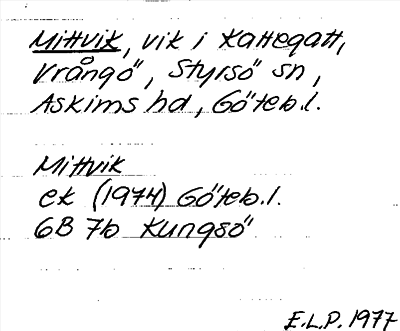 Mittvik, vik i Kattegatt,
Vrångö, Styrsö sn,
Askims hd, Göteb.l.
Mittvik
ek (1974) Göteb.l.
6B 7b Kungsö
E.L.P. 1977